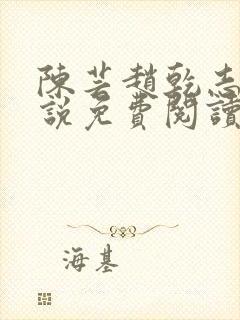 陳芸趙乾志
說免費閱讀
海基